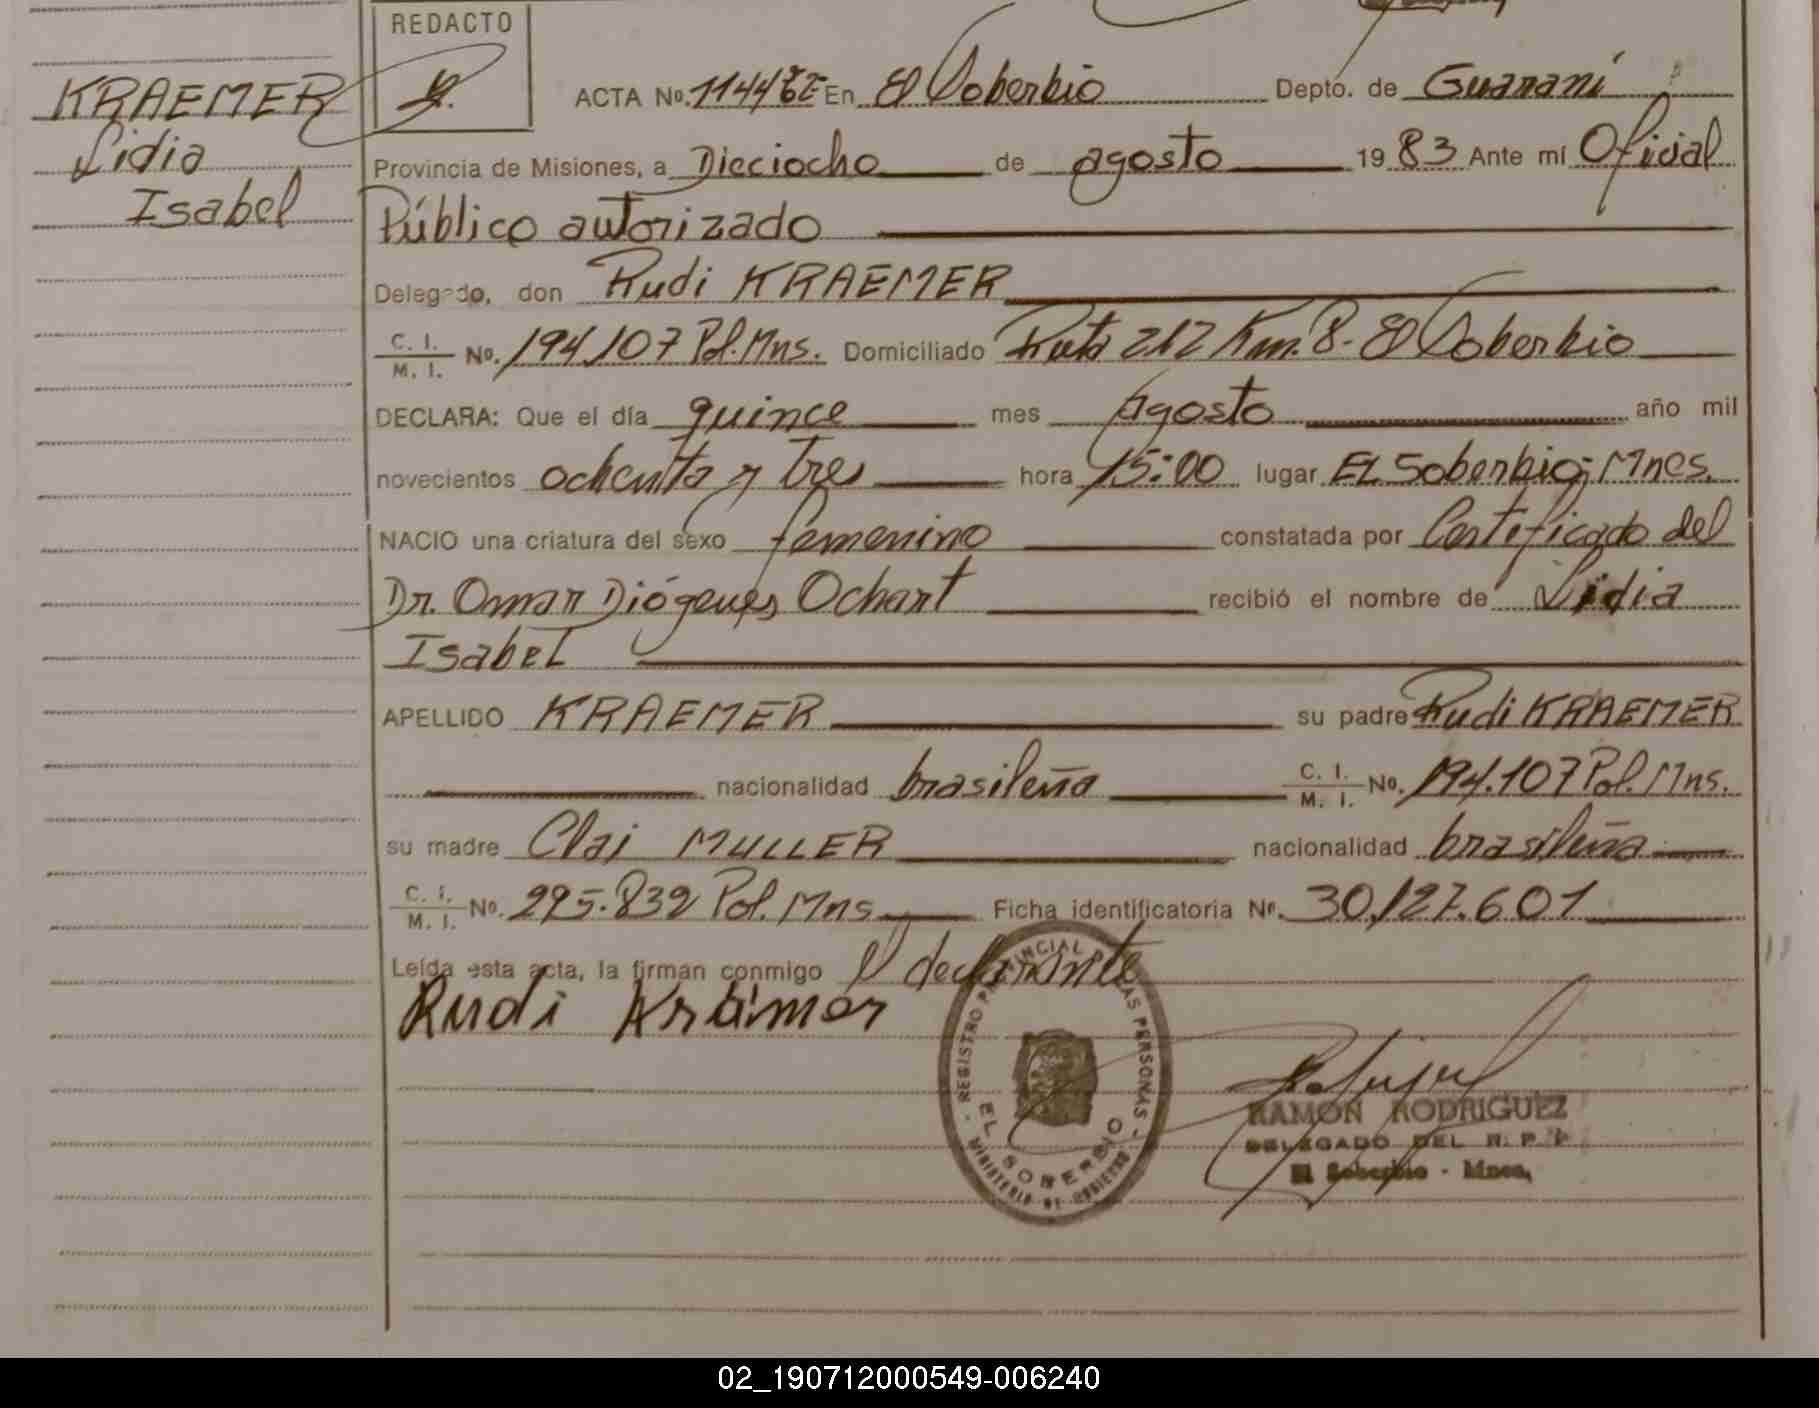 REDACTO
KRAEMER
Lidia
Isabel
ACTA No. En El Soberbio Depto. de Guaraní
Provincia de Misiones, a Dieciocho de agosto 19 83 Ante mí Oficial
Público autorizado
Delegado, don Rudi KRAEMER
C. I. / M. I. No. 194.107 Pol. Mns. Domiciliado Ruta 212 Km. 8 - El Soberbio
DECLARA: Que el día quince mes agosto año mil
novecientos ochenta y tres hora 15:00 lugar EL Soberbio; Mnes.
NACIO una criatura del sexo femenino constatada por Certificado del
Dr. Omar Diógenes Ochart recibió el nombre de Lidia
Isabel
APELLIDO KRAEMER su padre Rudi KRAEMER
nacionalidad brasileña C. I. / M. I. No. 194.107 Pol. Mns.
su madre Clai MULLER nacionalidad brasileña
C. I. / M. I. No. 295.832 Pol. Mns Ficha identificatoria Nº. 30.127.601
Leída esta acta, la firman conmigo el declarante
Rudi Krämer
REGISTRO PROVINCIAL DE LAS PERSONAS
EL SOBERBIO
MINISTERIO DE GOBIERNO
RAMON RODRIGUEZ
DELEGADO DEL R. P. P.
El Soberbio - Mnes.
02_190712000549-006240